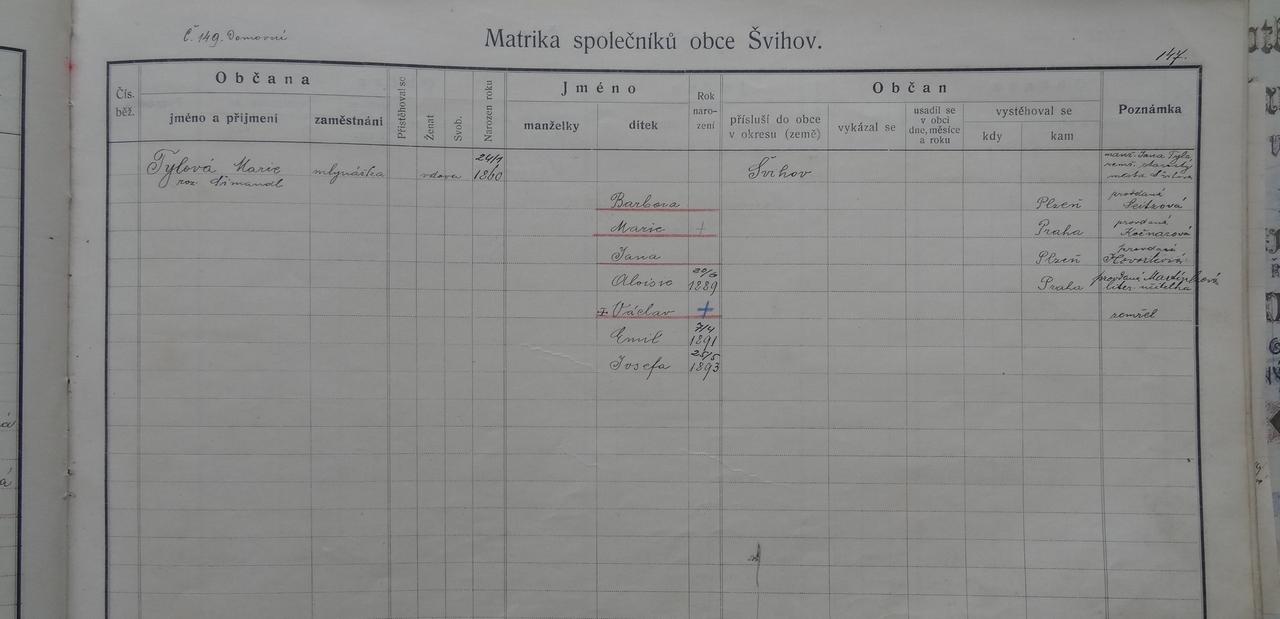 Č. 149. Domovní
Matrika společníků obce Švihov.
147.
Čís. běž.
Občana
jméno a přijmení
zaměstnání
Přistěhoval se
Ženat
Svob.
Narozen roku
Jméno
manželky
dítek
Rok naro- zení
Občan
přísluší do obce v okresu (země)
vykázal se
usadil se v obci dne, měsíce a roku
vystěhoval se
kdy
kam
Poznámka
Tylová Marie mlynářka vdova 24/1 1860 Švihov manž. Jana Tyla,
roz. Šimandl zemř. starosty
města Švihova
Barbora Plzeň provdaná Seitzová
Marie + Praha provdaná Kočnarová
Jana Plzeň provdaná
Aloisie 20/6 1889 Praha provdaná
liter. učitelka
Václav + zemřel
Emil 7/4 1891
Josefa 25/5 1893